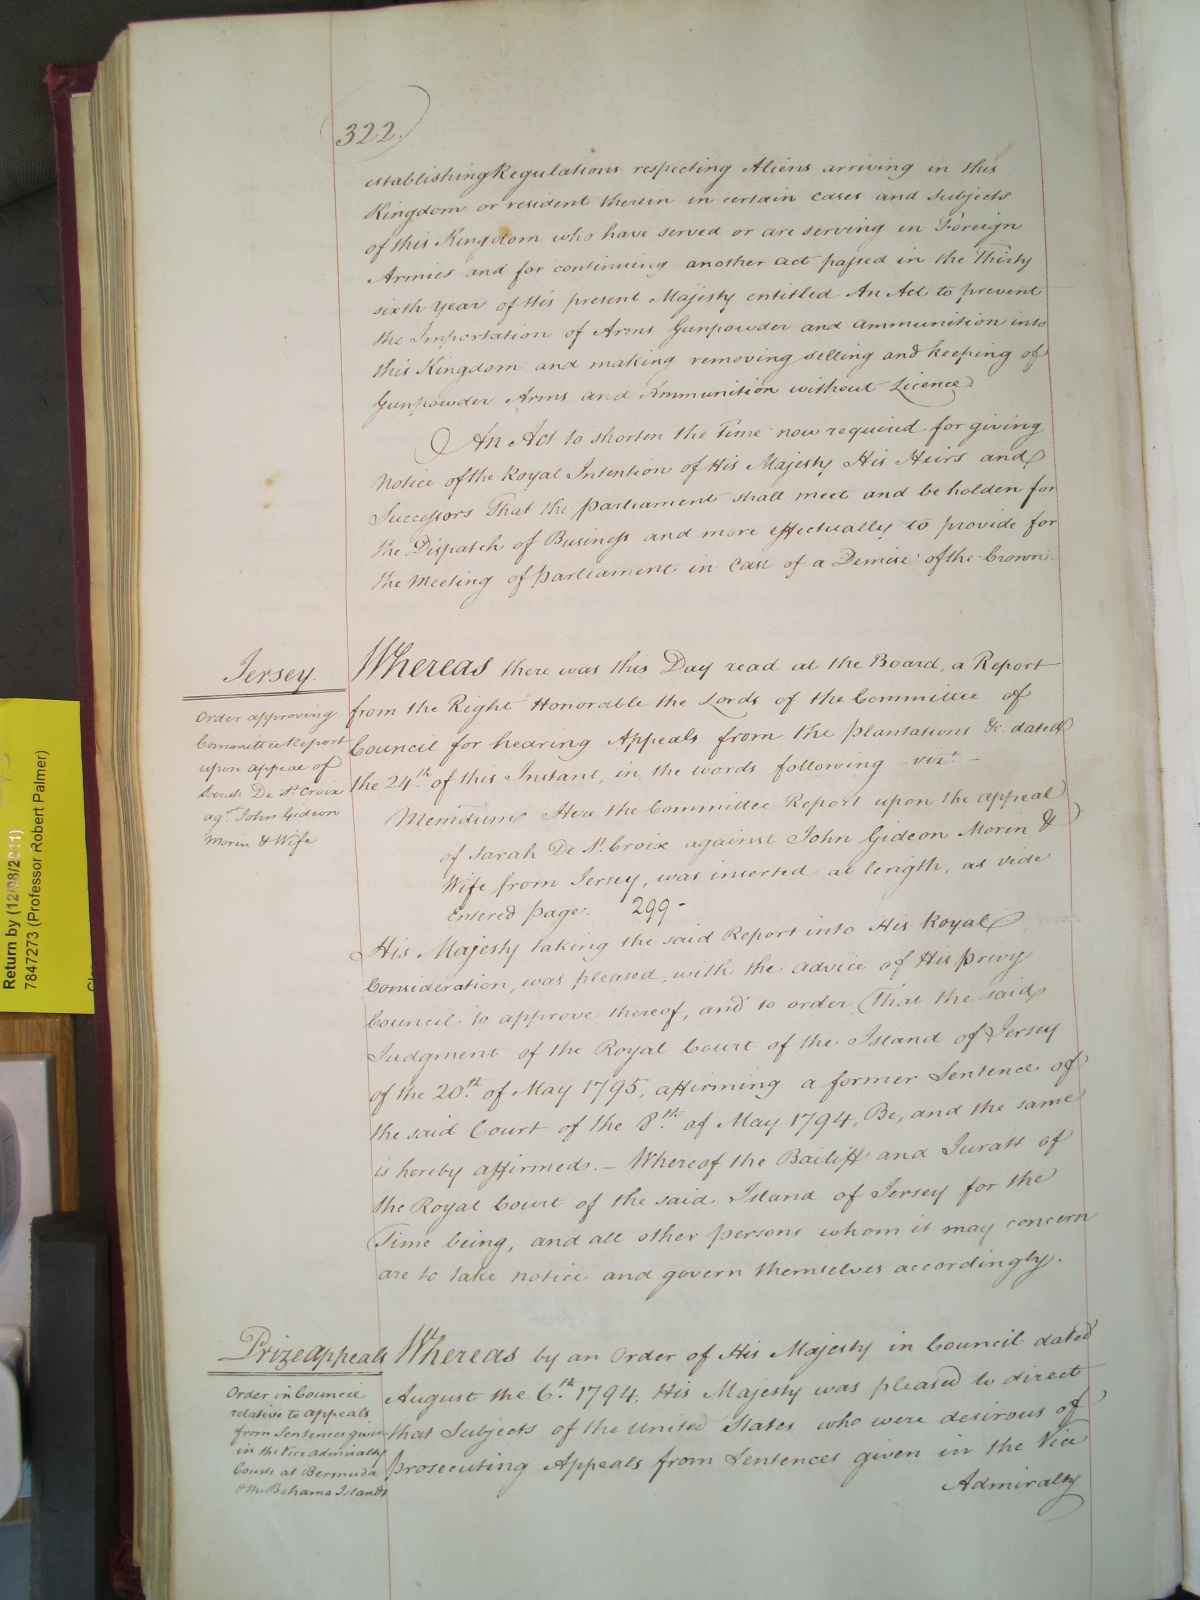 322.
establishing Regulations respecting Aliens arriving in this
Kingdom or resident therein in certain cases and Subjects
of this Kingdom who have served or are serving in Foreign
Armies and for continuing another act passed in the Thirty
sixth year of His present Majesty entitled An Act to prevent
the Importation of Arms Gunpowder and ammunition into
this Kingdom and making removing selling and keeping of
Gunpowder Arms and Ammunition without Licence
An Act to shorten the Time now required for giving
Notice of the Royal Intention of His Majesty His Heirs and
Successors That the Parliament shall meet and be holden for
the Dispatch of Business and more effectually to provide for
the Meeting of Parliament in Case of a Demise of the Crown.
Jersey.
Order approving
Committee Report
upon appeal of
Sarah De St. Croix
agst. John Gideon
Morin & Wife
Whereas there was this Day read at the Board, a Report
from the Right Honorable the Lords of the Committee of
Council for hearing Appeals from the Plantations &c. dated
the 24th. of this Instant, in the words following vizt. -
Memdum Here the Committee Report upon the appeal
of Sarah De St. Croix against John Gideon Morin &
Wife from Jersey, was inserted at length, as vide
Entered page. 299 -
His Majesty taking the said Report into His Royal
Consideration, was pleased, with the advice of His Privy
Council to approve thereof, and to order That the said
Judgment of the Royal Court of the Island of Jersey
of the 20th. of May 1795, affirming a former Sentence of
the said Court of the 8th. of May 1794, Be, and the same
is hereby affirmed. - Whereof the Bailiff and Jurats of
the Royal Court of the said Island of Jersey for the
Time being, and all other persons whom it may concern
are to take notice and govern themselves accordingly.
Prize appeals
Order in Council
relative to appeals
from Sentences given
in the Vice admiralty
Courts at Bermuda
& the Bahama Islands
Whereas by an Order of His Majesty in Council dated
August the 6th. 1794, His Majesty was pleased to direct
that Subjects of the United States who were desirous of
prosecuting Appeals from Sentences given in the Vice
Admiralty
Return by (12/08/2011)
7847273 (Professor Robert Palmer)